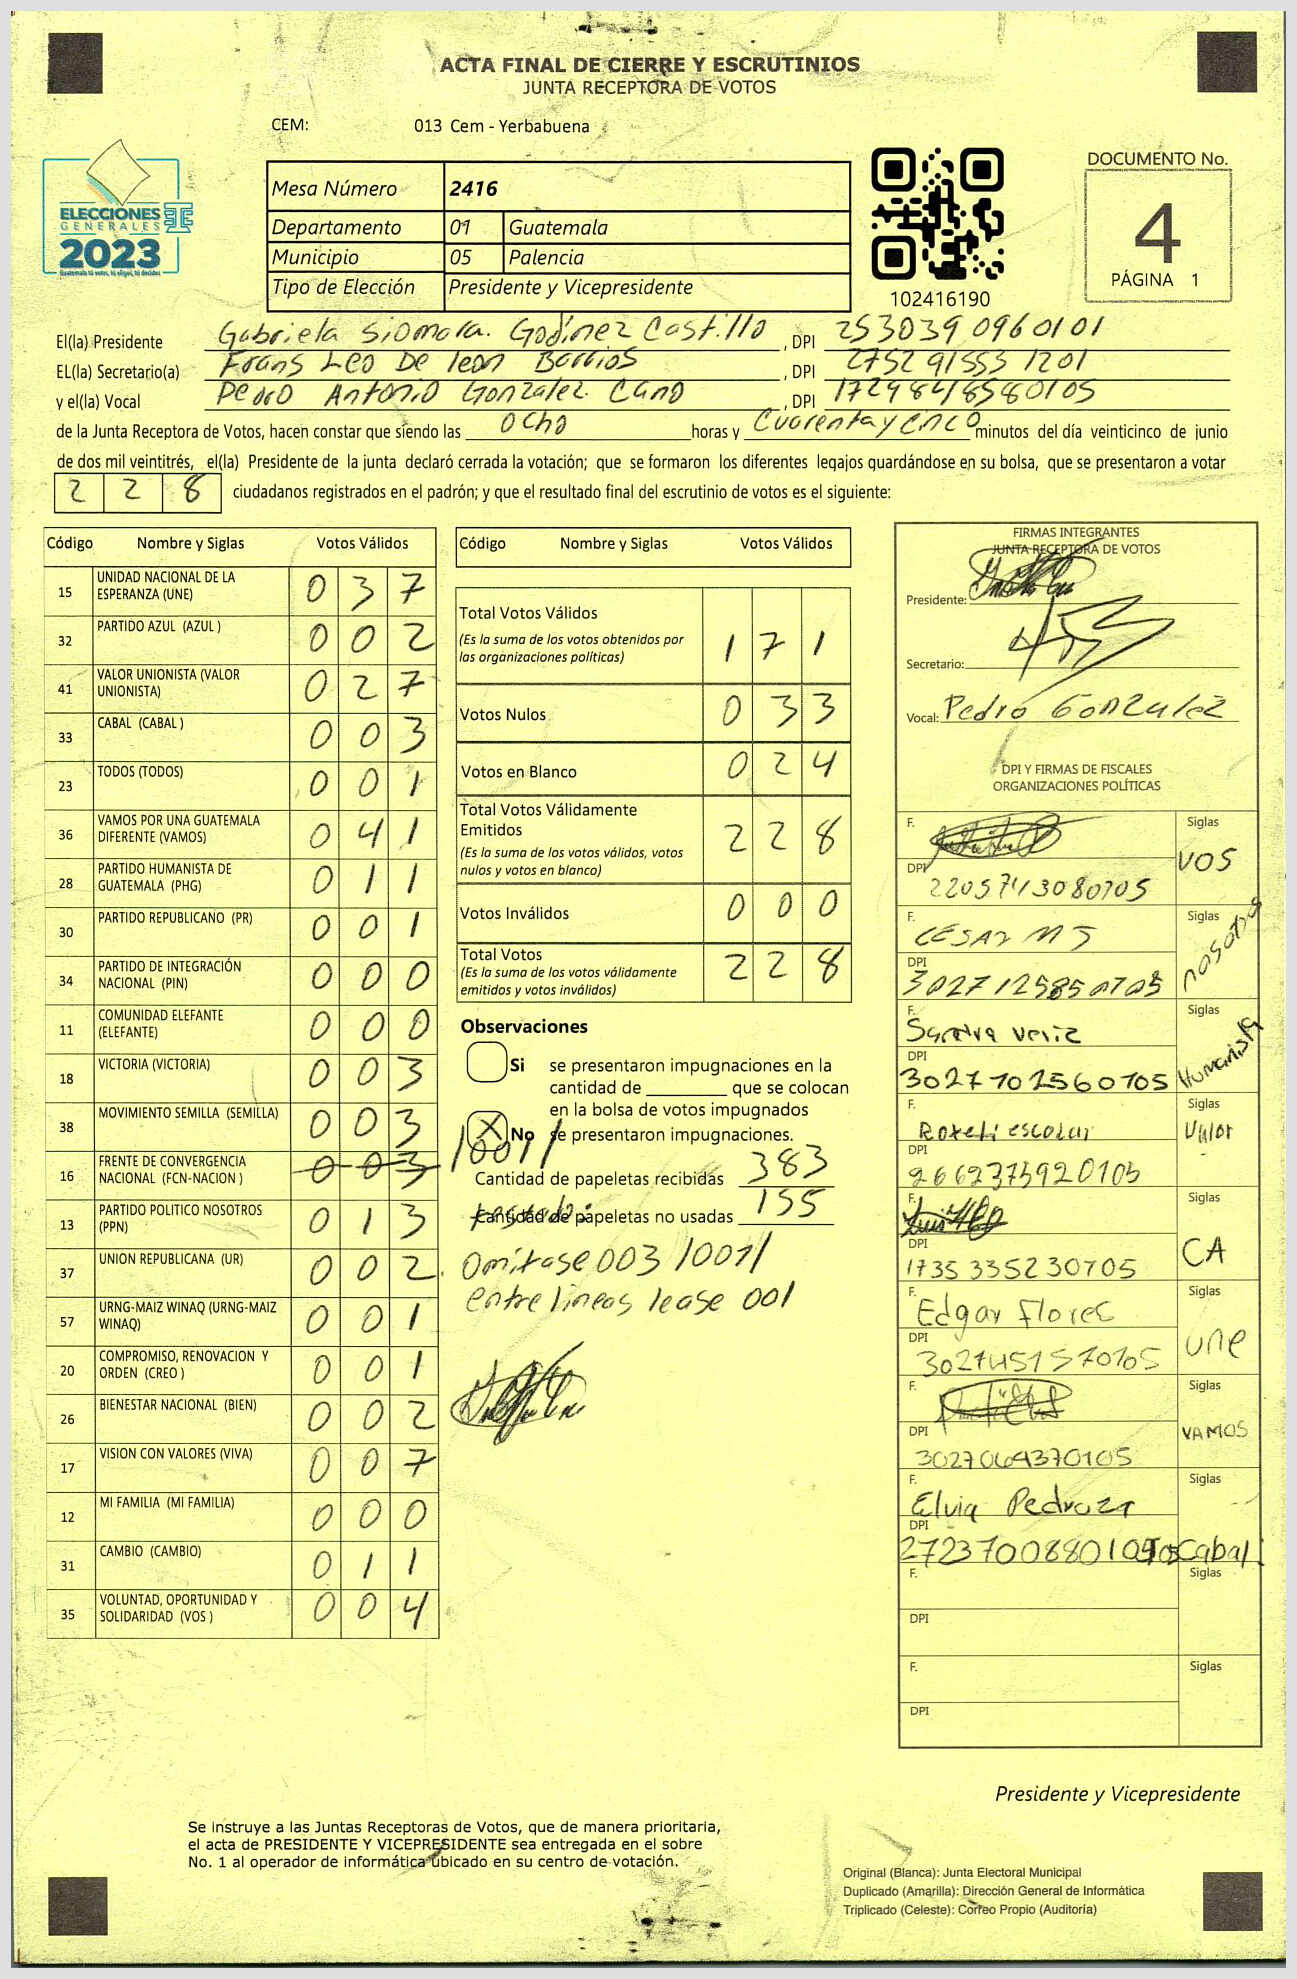 ACTA FINAL DE CIERRE Y ESCRUTINIOS
JUNTA RECEPTORA DE VOTOS
CEM: 013 Cem - Yerbabuena
ELECCIONES
GENERALES
2023
Guatemala tú votas, tú eliges, tú decides
Mesa Número 2416
Departamento 01 Guatemala
Municipio 05 Palencia
Tipo de Elección Presidente y Vicepresidente
102416190
DOCUMENTO No.
4
PÁGINA 1
El(la) Presidente Gabriela Siomara. Godinez Castillo, DPI 253039 0960101
EL(la) Secretario(a) Frans Leo De leon Barrios, DPI 2752 91553 1201
y el(la) Vocal Pedro Antonio Gonzalez. Cano, DPI 1729848580105
de la Junta Receptora de Votos, hacen constar que siendo las ocho horas y Cuarenta y cinco minutos del día veinticinco de junio
de dos mil veintitrés, el(la) Presidente de la junta declaró cerrada la votación; que se formaron los diferentes legajos guardándose en su bolsa, que se presentaron a votar
2 2 8 ciudadanos registrados en el padrón; y que el resultado final del escrutinio de votos es el siguiente:
Código Nombre y Siglas Votos Válidos
15 UNIDAD NACIONAL DE LA ESPERANZA (UNE) 0 3 7
32 PARTIDO AZUL (AZUL ) 0 0 2
41 VALOR UNIONISTA (VALOR UNIONISTA) 0 2 7
33 CABAL (CABAL ) 0 0 3
23 TODOS (TODOS) 0 0 1
36 VAMOS POR UNA GUATEMALA DIFERENTE (VAMOS) 0 4 1
28 PARTIDO HUMANISTA DE GUATEMALA (PHG) 0 1 1
30 PARTIDO REPUBLICANO (PR) 0 0 1
34 PARTIDO DE INTEGRACIÓN NACIONAL (PIN) 0 0 0
11 COMUNIDAD ELEFANTE (ELEFANTE) 0 0 0
18 VICTORIA (VICTORIA) 0 0 3
38 MOVIMIENTO SEMILLA (SEMILLA) 0 0 3
16 FRENTE DE CONVERGENCIA NACIONAL (FCN-NACION ) 0 0 3 /001/
13 PARTIDO POLITICO NOSOTROS (PPN) 0 1 3
37 UNION REPUBLICANA (UR) 0 0 2
57 URNG-MAIZ WINAQ (URNG-MAIZ WINAQ) 0 0 1
20 COMPROMISO, RENOVACION Y ORDEN (CREO ) 0 0 1
26 BIENESTAR NACIONAL (BIEN) 0 0 2
17 VISION CON VALORES (VIVA) 0 0 7
12 MI FAMILIA (MI FAMILIA) 0 0 0
31 CAMBIO (CAMBIO) 0 1 1
35 VOLUNTAD, OPORTUNIDAD Y SOLIDARIDAD (VOS ) 0 0 4
Código Nombre y Siglas Votos Válidos
Total Votos Válidos
(Es la suma de los votos obtenidos por
las organizaciones políticas) 1 7 1
Votos Nulos 0 3 3
Votos en Blanco 0 2 4
Total Votos Válidamente
Emitidos
(Es la suma de los votos válidos, votos
nulos y votos en blanco) 2 2 8
Votos Inválidos 0 0 0
Total Votos
(Es la suma de los votos válidamente
emitidos y votos inválidos) 2 2 8
Observaciones
Si se presentaron impugnaciones en la
cantidad de ________ que se colocan
en la bolsa de votos impugnados
X No se presentaron impugnaciones.
Cantidad de papeletas recibidas 383
Cantidad de papeletas no usadas 155
Omitase 003 /001/
entre lineas lease 001
FIRMAS INTEGRANTES
JUNTA RECEPTORA DE VOTOS
Presidente:
Secretario:
Vocal: Pedro Gonzalez
DPI Y FIRMAS DE FISCALES
ORGANIZACIONES POLÍTICAS
F. Siglas VOS
DPI 2205743080705
F. CESAR MJ Siglas nosotros
DPI 3027125850705
F. Sandra veliz Siglas Humanista
DPI 3027702560705
F. Roxeli escobar Siglas Valor
DPI 2662375920105
F. Siglas CA
DPI 1735335230705
F. Edgar Flores Siglas une
DPI 3027451570705
F. Siglas VAMOS
DPI 3027069370105
F. Elvia Pedroza Siglas Cabal
DPI 2723700880105
F. Siglas
DPI
F. Siglas
DPI
Presidente y Vicepresidente
Se instruye a las Juntas Receptoras de Votos, que de manera prioritaria,
el acta de PRESIDENTE Y VICEPRESIDENTE sea entregada en el sobre
No. 1 al operador de informática ubicado en su centro de votación.
Original (Blanca): Junta Electoral Municipal
Duplicado (Amarilla): Dirección General de Informática
Triplicado (Celeste): Correo Propio (Auditoría)